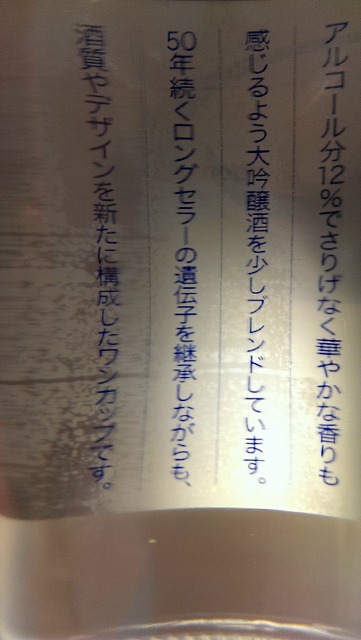 アルコール分12%でさりげなく華やかな香りも
感じるよう大吟醸酒を少しブレンドしています。
50年続くロングセラーの遺伝子を継承しながらも、
酒質やデザインを新たに構成したワンカップです。